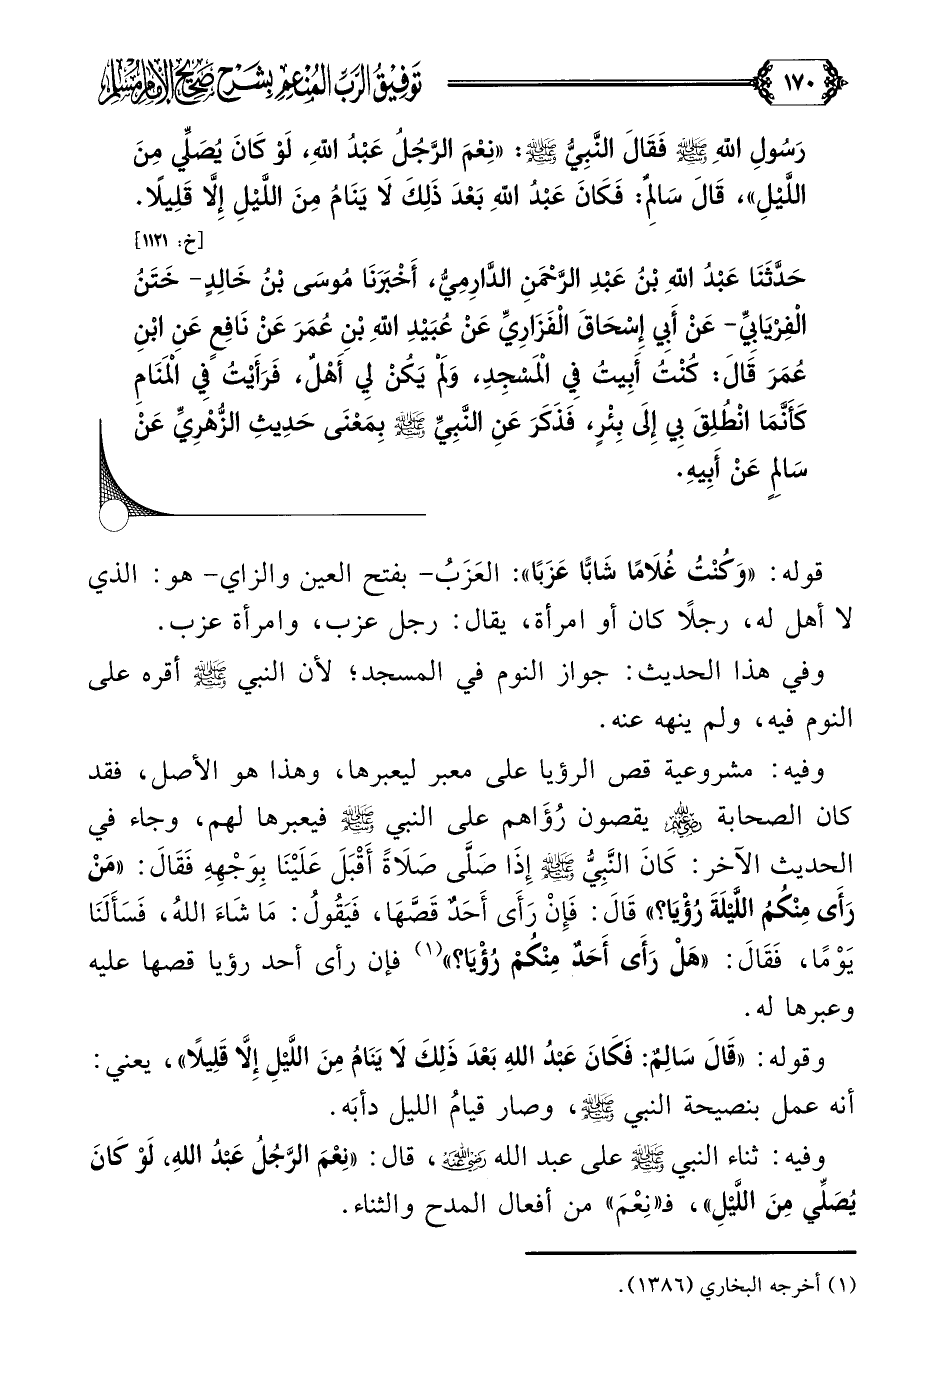 ١٧٠
توفيق الرب المنعم بشرح صحيح الإمام مسلم
رَسُولِ اللهِ ﷺ فَقَالَ النَّبِيُّ ﷺ: «نِعْمَ الرَّجُلُ عَبْدُ اللهِ، لَوْ كَانَ يُصَلِّي مِنَ
اللَّيْلِ»، قَالَ سَالِمٌ: فَكَانَ عَبْدُ اللهِ بَعْدَ ذَلِكَ لَا يَنَامُ مِنَ اللَّيْلِ إِلَّا قَلِيلًا.
[خ: ١١٢١]
حَدَّثَنَا عَبْدُ اللهِ بْنُ عَبْدِ الرَّحْمَنِ الدَّارِمِيُّ، أَخْبَرَنَا مُوسَى بْنُ خَالِدٍ- خَتَنُ
الْفِرْيَابِيِّ- عَنْ أَبِي إِسْحَاقَ الْفَزَارِيِّ عَنْ عُبَيْدِ اللهِ بْنِ عُمَرَ عَنْ نَافِعٍ عَنِ ابْنِ
عُمَرَ قَالَ: كُنْتُ أَبِيتُ فِي الْمَسْجِدِ، وَلَمْ يَكُنْ لِي أَهْلٌ، فَرَأَيْتُ فِي الْمَنَامِ
كَأَنَّمَا انْطُلِقَ بِي إِلَى بِئْرٍ، فَذَكَرَ عَنِ النَّبِيِّ ﷺ بِمَعْنَى حَدِيثِ الزُّهْرِيِّ عَنْ
سَالِمٍ عَنْ أَبِيهِ.
قوله: «وَكُنْتُ غُلَامًا شَابًّا عَزَبًا»: العَزَبُ- بفتح العين والزاي- هو: الذي
لا أهل له، رجلًا كان أو امرأة، يقال: رجل عزب، وامرأة عزب.
وفي هذا الحديث: جواز النوم في المسجد؛ لأن النبي ﷺ أقره على
النوم فيه، ولم ينهه عنه.
وفيه: مشروعية قص الرؤيا على معبر ليعبرها، وهذا هو الأصل، فقد
كان الصحابة رضي الله عنهم يقصون رُؤَاهم على النبي ﷺ فيعبرها لهم، وجاء في
الحديث الآخر: كَانَ النَّبِيُّ ﷺ إِذَا صَلَّى صَلَاةً أَقْبَلَ عَلَيْنَا بِوَجْهِهِ فَقَالَ: «مَنْ
رَأَى مِنْكُمُ اللَّيْلَةَ رُؤْيَا؟» قَالَ: فَإِنْ رَأَى أَحَدٌ قَصَّهَا، فَيَقُولُ: مَا شَاءَ اللهُ، فَسَأَلَنَا
يَوْمًا، فَقَالَ: «هَلْ رَأَى أَحَدٌ مِنْكُمْ رُؤْيَا؟»(١) فإن رأى أحد رؤيا قصها عليه
وعبرها له.
وقوله: «قَالَ سَالِمٌ: فَكَانَ عَبْدُ اللهِ بَعْدَ ذَلِكَ لَا يَنَامُ مِنَ اللَّيْلِ إِلَّا قَلِيلًا»، يعني:
أنه عمل بنصيحة النبي ﷺ، وصار قيامُ الليل دأبَه.
وفيه: ثناء النبي ﷺ على عبد الله رضي الله عنه، قال: «نِعْمَ الرَّجُلُ عَبْدُ اللهِ، لَوْ كَانَ
يُصَلِّي مِنَ اللَّيْلِ»، فـ«نِعْمَ» من أفعال المدح والثناء.
(١) أخرجه البخاري (١٣٨٦).